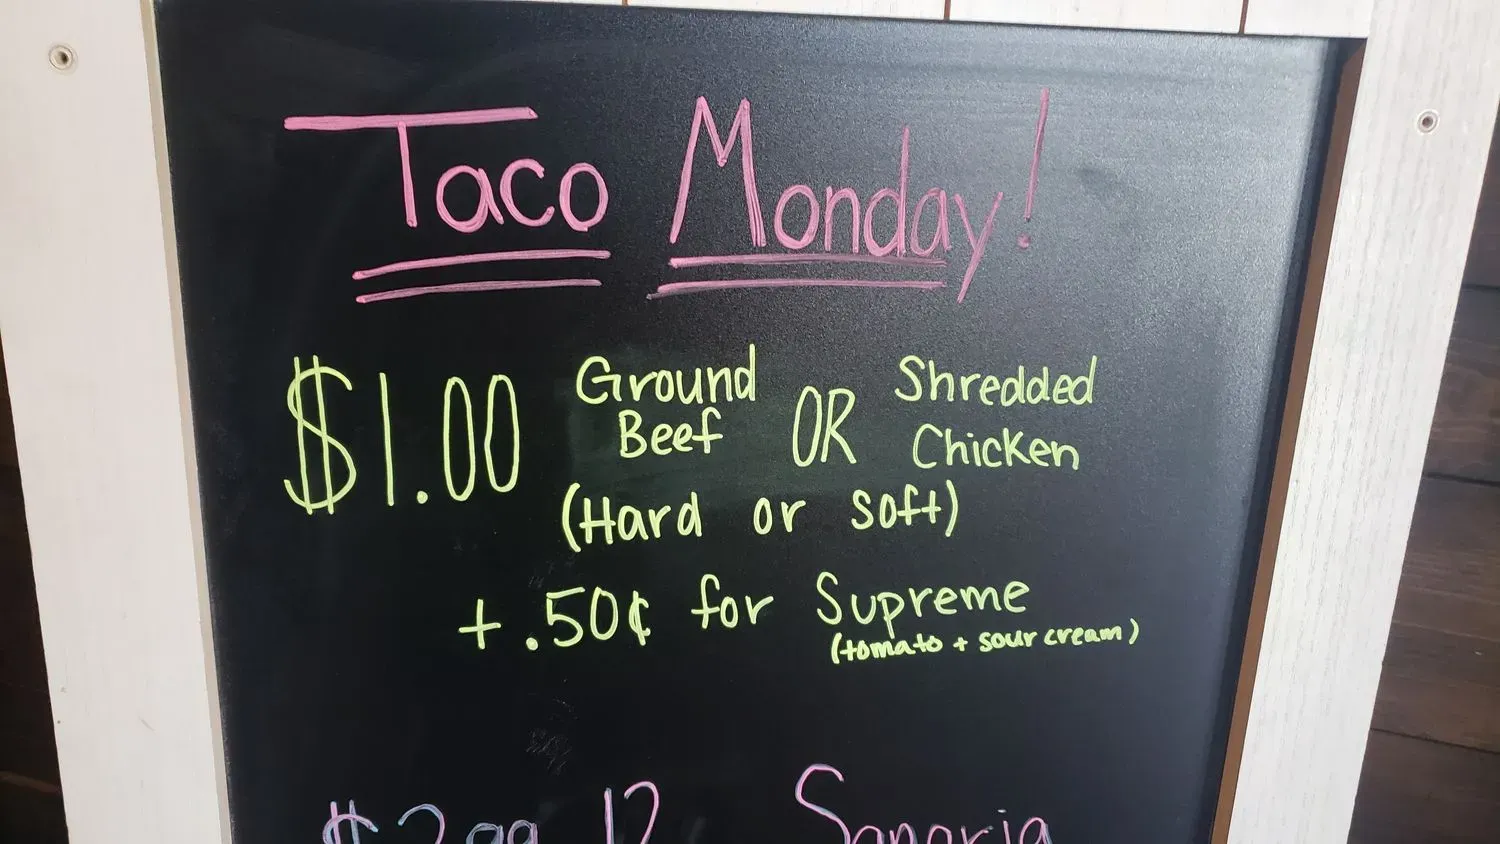 Taco Monday!
$1.00 Ground Beef OR Shredded Chicken
(Hard or Soft)
+ .50¢ for Supreme
(tomato + sour cream)
$2.99 12 Sangria